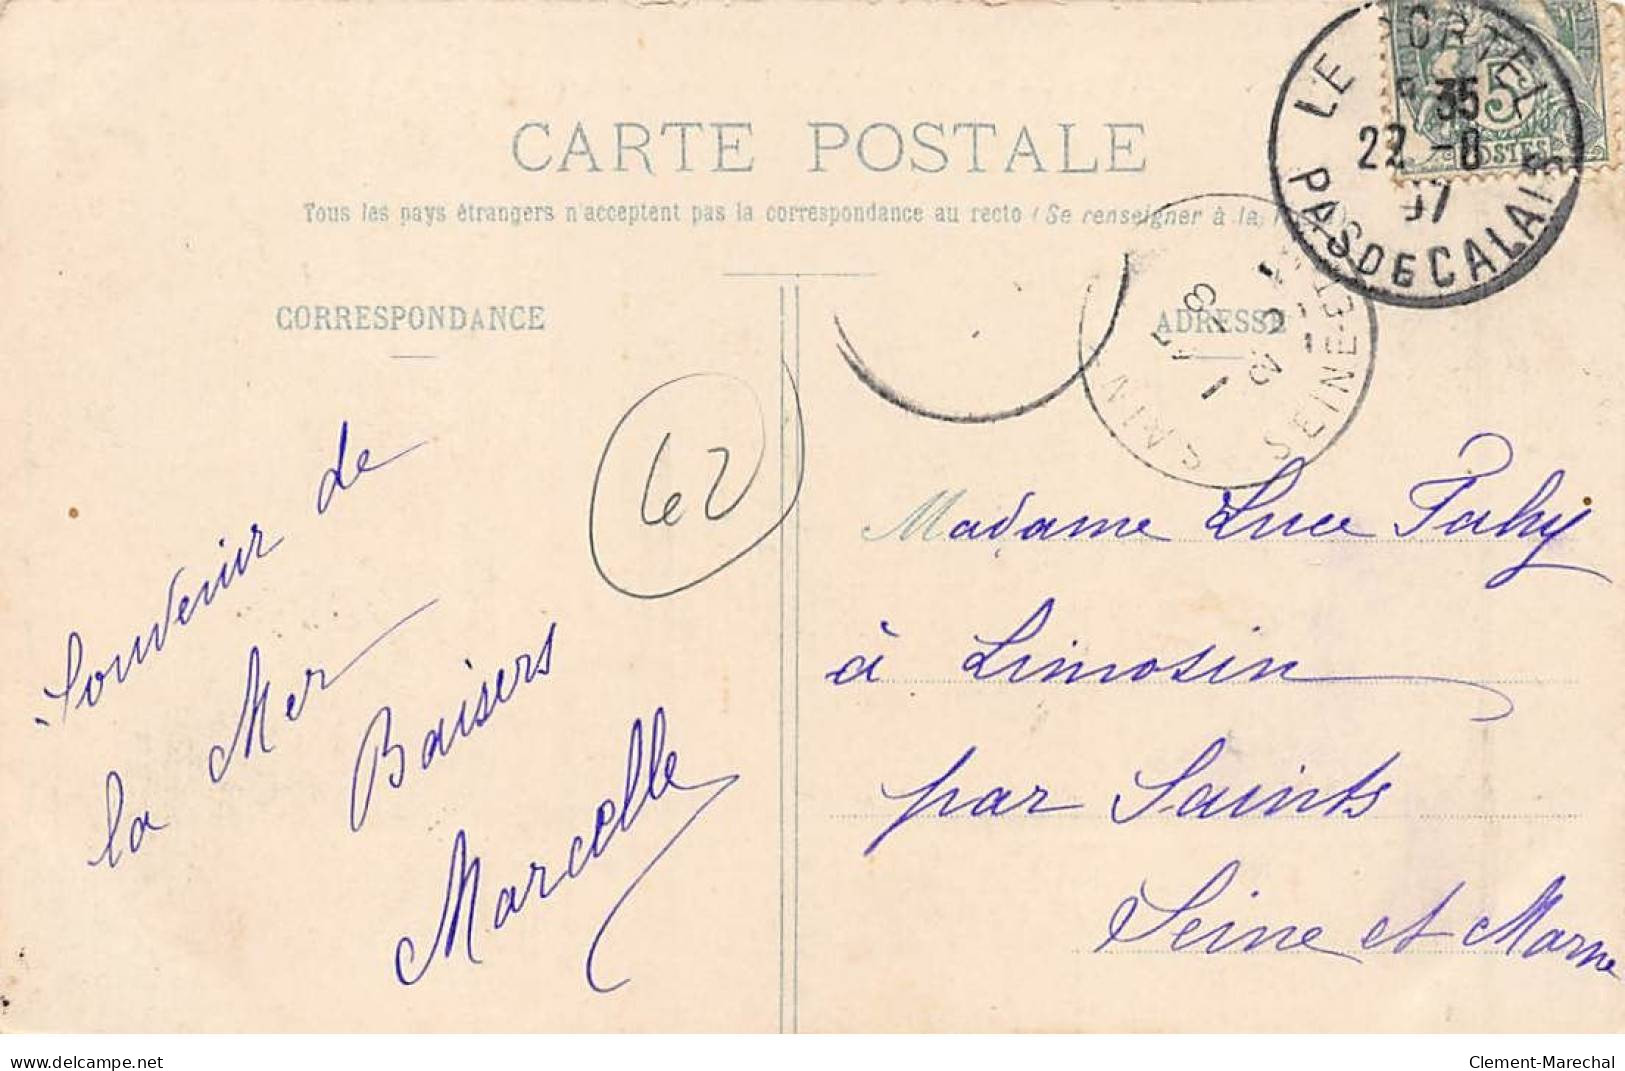 CARTE POSTALE
Tous les pays étrangers n'acceptent pas la correspondance au recto (Se renseigner à la
CORRESPONDANCE
ADRESSE
LE PORTEL
35
22 -8
07
PAS DE CALAIS
5
POSTES
SEINE-ET-M
62
Souvenir de
la Mer
Baisers
Marcelle
Madame Luce Pahy
à Limosin
par Saints
Seine et Marne
www.delcampe.net
Clement-Marechal